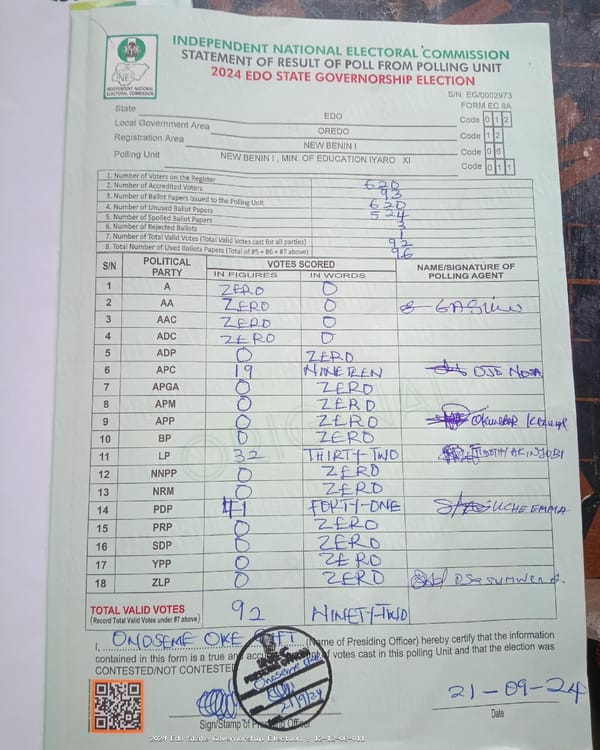 INDEPENDENT NATIONAL ELECTORAL COMMISSION
STATEMENT OF RESULT OF POLL FROM POLLING UNIT
2024 EDO STATE GOVERNORSHIP ELECTION
INDEPENDENT NATIONAL
ELECTORAL COMMISSION
S/N: EG/0002973
FORM EC 8A
State EDO Code 0 1 2
Local Government Area OREDO Code 1 2
Registration Area NEW BENIN I Code 0 6
Polling Unit NEW BENIN I , MIN. OF EDUCATION IYARO XI Code 0 1 1
1. Number of Voters on the Register 620
2. Number of Accredited Voters 93
3. Number of Ballot Papers Issued to the Polling Unit 620
4. Number of Unused Ballot Papers 524
5. Number of Spoiled Ballot Papers 3
6. Number of Rejected Ballots 1
7. Number of Total Valid Votes (Total Valid Votes cast for all parties) 92
8. Total Number of Used Ballots Papers (Total of #5 + #6 + #7 above) 96
S/N POLITICAL PARTY VOTES SCORED NAME/SIGNATURE OF POLLING AGENT
IN FIGURES IN WORDS
1 A ZERO 0
2 AA ZERO 0
3 AAC ZERO 0
4 ADC ZERO 0
5 ADP 0 ZERO
6 APC 19 NINETEEN
7 APGA 0 ZERO
8 APM 0 ZERO
9 APP 0 ZERO
10 BP 0 ZERO
11 LP 32 THIRTY-TWO
12 NNPP 0 ZERO
13 NRM 0 ZERO
14 PDP 41 FORTY-ONE UCHE EMMA
15 PRP 0 ZERO
16 SDP 0 ZERO
17 YPP 0 ZERO
18 ZLP 0 ZERO
TOTAL VALID VOTES 92 NINETY-TWO
(Record Total Valid Votes under #7 above)
I, ONOSEME OKE (Name of Presiding Officer) hereby certify that the information
contained in this form is a true and of votes cast in this polling Unit and that the election was
CONTESTED/NOT CONTESTED
INEC
PRESIDING OFFICER
21/9/24
21-09-24
Sign/Stamp of Presiding Officer Date
ORIGINAL
2024 Edo State Governorship Election : 12-12-06-011